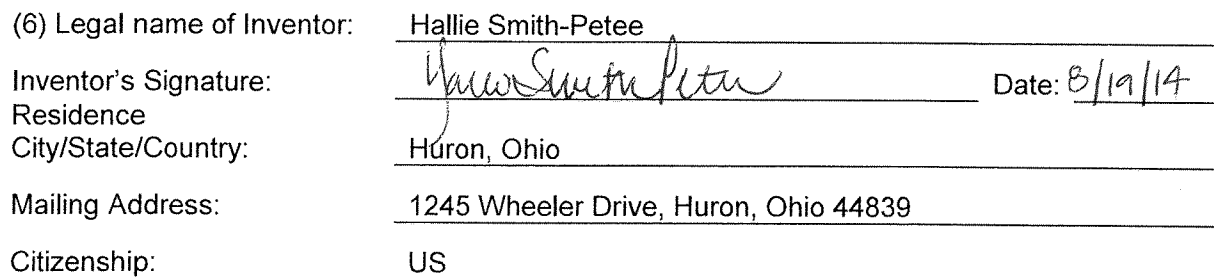 (6) Legal name of Inventor: Hallie Smith-Petee
Inventor's Signature: Hallie Smith Petee Date: 8/19/14
Residence
City/State/Country: Huron, Ohio
Mailing Address: 1245 Wheeler Drive, Huron, Ohio 44839
Citizenship: US